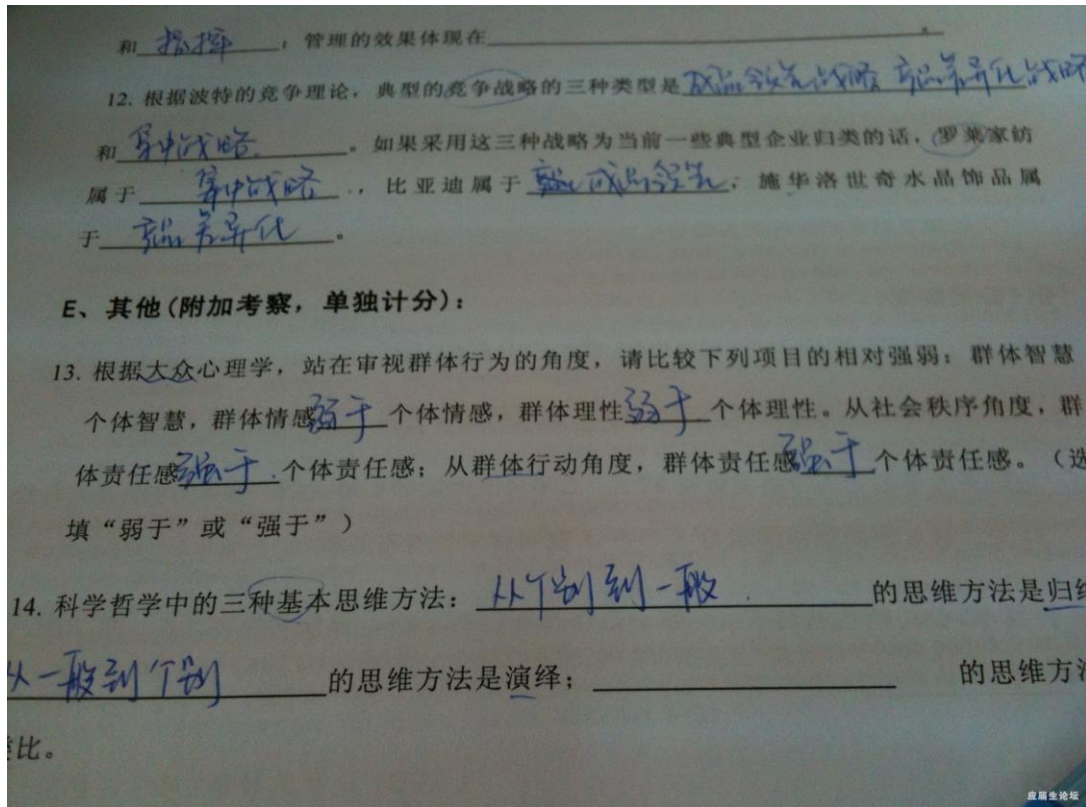 和 指挥 ，管理的效果体现在 。
12. 根据波特的竞争理论，典型的竞争战略的三种类型是 成品领先战略 产品差异化战略
和 集中战略 。如果采用这三种战略为当前一些典型企业归类的话，罗莱家纺
属于 集中战略 ，比亚迪属于 成品领先 ，施华洛世奇水晶饰品属
于 产品差异化 。
E、其他(附加考察，单独计分)：
13. 根据大众心理学，站在审视群体行为的角度，请比较下列项目的相对强弱：群体智慧
个体智慧，群体情感 弱于 个体情感，群体理性 弱于 个体理性。从社会秩序角度，群
体责任感 强于 个体责任感；从群体行动角度，群体责任感 强于 个体责任感。（选
填“弱于”或“强于”）
14. 科学哲学中的三种基本思维方法： 从个别到一般 的思维方法是归纳
从一般到个别 的思维方法是演绎； 的思维方法
类比。
应届生论坛